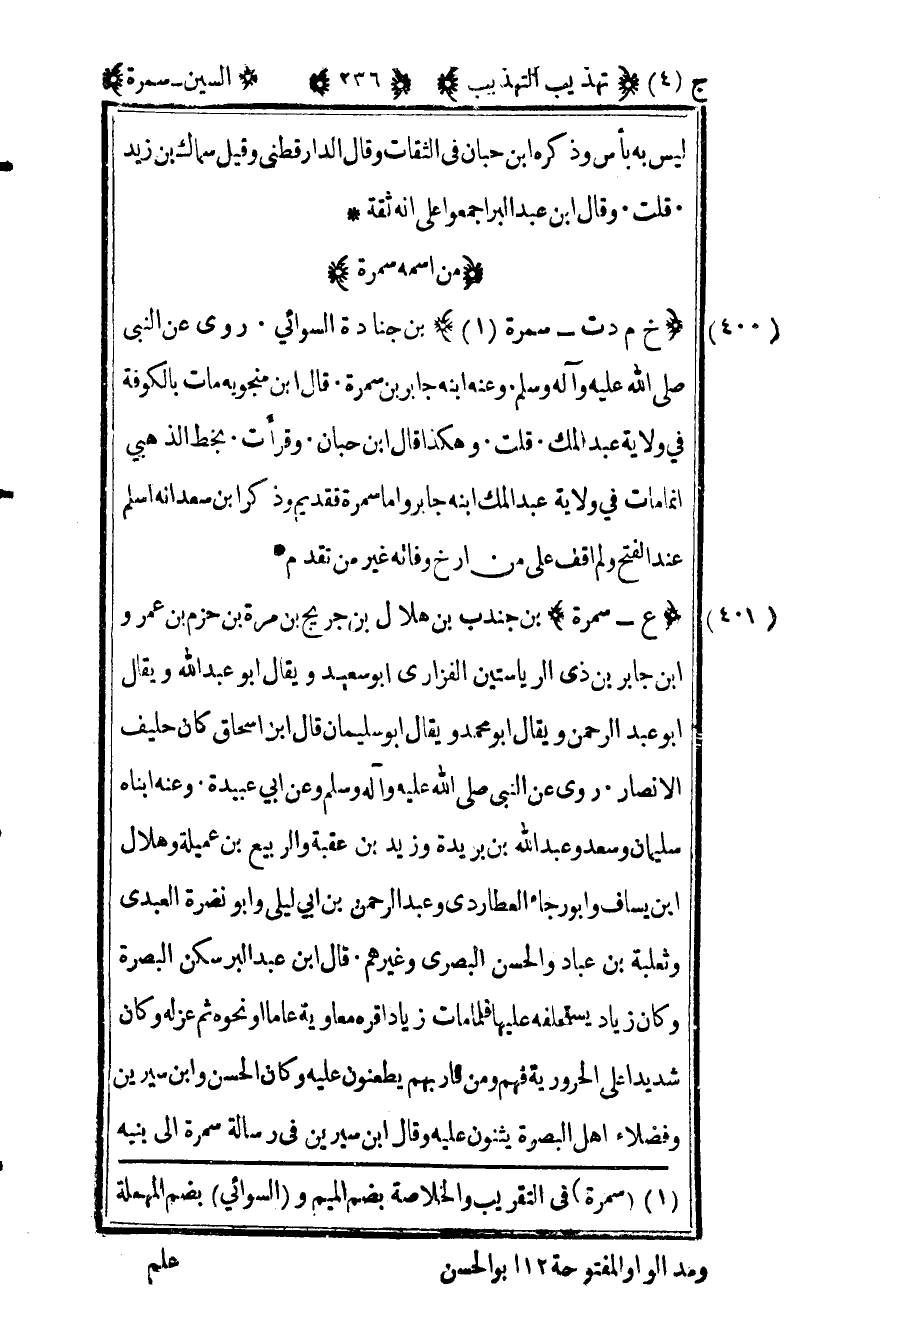 ج (٤) ﴿ تهذيب التهذيب ﴾ ﴿ ٢٣٦ ﴾ ﴿ السين ـ سمرة ﴾
ليس به بأس وذكره ابن حبان فى الثقات وقال الدارقطنى وقيل سماك بن زيد
٠ قلت ٠ وقال ابن عبد البر اجمعوا على انه ثقة *
﴿ من اسمه سمرة ﴾
(٤٠٠) ﴿ خ م د ت ـ سمرة (١) ﴾ بن جنادة السوائي ٠ روى عن النبى
صلى الله عليه وآله وسلم ٠ وعنه ابنه جابر بن سمرة ٠ قال ابن منجويه مات بالكوفة
في ولاية عبد الملك ٠ قلت ٠ وهكذا قال ابن حبان ٠ وقرأت ٠ بخط الذهبي
انما مات في ولاية عبد الملك ابنه جابر واما سمرة فقديم وذكر ابن سعد انه اسلم
عند الفتح ولم اقف على من ارخ وفاته غير من تقدم *
(٤٠١) ﴿ ع ـ سمرة ﴾ بن جندب بن هلال بن جريج بن مرة بن حزم بن عمرو
ابن جابر بن ذى الرياستين الفزارى ابو سعيد ويقال ابو عبد الله ويقال
ابو عبد الرحمن ويقال ابو محمد ويقال ابو سليمان قال ابن اسحاق كان حليف
الانصار ٠ روى عن النبى صلى الله عليه وآله وسلم وعن ابي عبيدة ٠ وعنه ابناه
سليمان وسعد وعبد الله بن بريدة وزيد بن عقبة والربيع بن عميلة وهلال
ابن يساف وابو رجاء العطاردى وعبد الرحمن بن ابي ليلى وابو نضرة العبدى
وثعلبة بن عباد والحسن البصرى وغيرهم ٠ قال ابن عبد البر سكن البصرة
وكان زياد يستخلفه عليها فلما مات زياد اقره معاوية عاما او نحوه ثم عزله وكان
شديدا على الحرورية فهم ومن قاربهم يطعنون عليه وكان الحسن وابن سيرين
وفضلاء اهل البصرة يثنون عليه وقال ابن سيرين فى رسالة سمرة الى بنيه
(١) (سمرة) فى التقريب والخلاصة بضم الميم و (السوائي) بضم المهملة
ومد الواو المفتوحة ١٢ ابو الحسن
علم